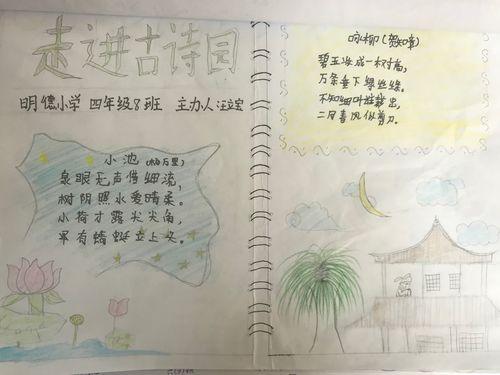 走进古诗园
明德小学 四年级8班 主办人汪立宝
小池(杨万里)
泉眼无声惜细流,
树阴照水爱晴柔。
小荷才露尖尖角,
早有蜻蜓立上头。
咏柳(贺知章)
碧玉妆成一树高,
万条垂下绿丝绦。
不知细叶谁裁出,
二月春风似剪刀。